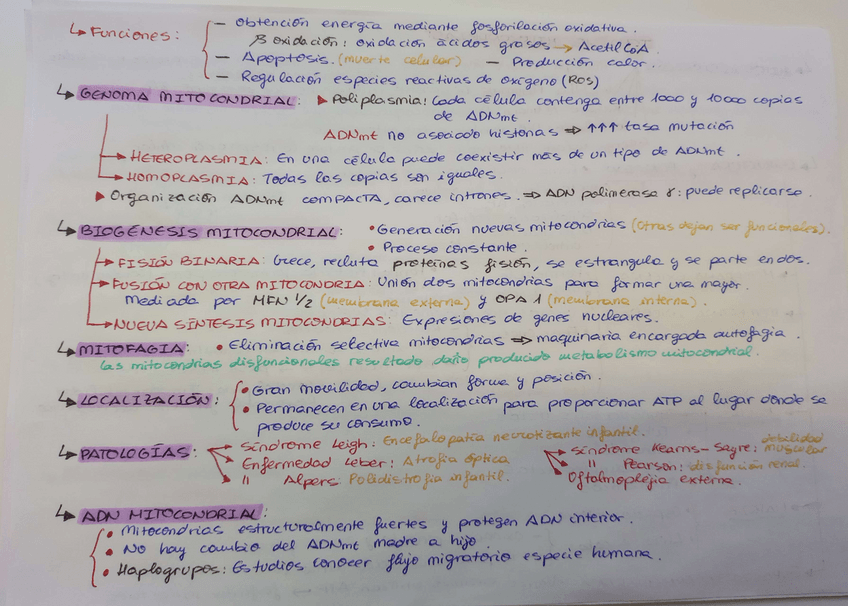 ↳ Funciones: — Obtención energía mediante fosforilación oxidativa.
β oxidación: oxidación ácidos grasos → Acetil CoA.
— Apoptosis. (muerte celular) — Producción calor.
— Regulación especies reactivas de oxígeno (ROS)
↳ GENOMA MITOCONDRIAL: ▸ Poliplasmia: Cada célula contenga entre 1000 y 10000 copias
de ADNmt.
ADNmt no asociado histonas ⇒ ↑↑↑ tasa mutación
→ HETEROPLASMIA: En una célula puede coexistir más de un tipo de ADNmt.
→ HOMOPLASMIA: Todas las copias son iguales.
▸ Organización ADNmt COMPACTA, carece intrones. ⇒ ADN polimerasa γ: puede replicarse.
↳ BIOGÉNESIS MITOCONDRIAL: • Generación nuevas mitocondrias (Otras dejan ser funcionales).
• Proceso constante.
→ FISIÓN BINARIA: Crece, recluta proteínas fisión, se estrangula y se parte en dos.
→ FUSIÓN CON OTRA MITOCONDRIA: Unión dos mitocondrias para formar una mayor.
Mediada por MFN 1/2 (membrana externa) y OPA 1 (membrana interna).
→ NUEVA SÍNTESIS MITOCONDRIAS: Expresiones de genes nucleares.
↳ MITOFAGIA: • Eliminación selectiva mitocondrias ⇒ maquinaria encargada autofagia.
Las mitocondrias disfuncionales resultado daño producido metabolismo mitocondrial.
↳ LOCALIZACIÓN: • Gran movilidad, cambian forma y posición.
• Permanecen en una localización para proporcionar ATP al lugar donde se
produce su consumo.
↳ PATOLOGÍAS: → Síndrome Leigh: Encefalopatía necrotizante infantil. → Síndrome Kearns-Sayre: debilidad muscular
→ Enfermedad Leber: Atrofia óptica → " Pearson: disfunción renal.
→ " Alpers: Polidistrofia infantil. → Oftalmoplejia externa.
↳ ADN MITOCONDRIAL:
• Mitocondrias estructuralmente fuertes y protegen ADN interior.
• No hay cambio del ADNmt madre a hijo.
• Haplogrupos: Estudios conocer flujo migratorio especie humana.